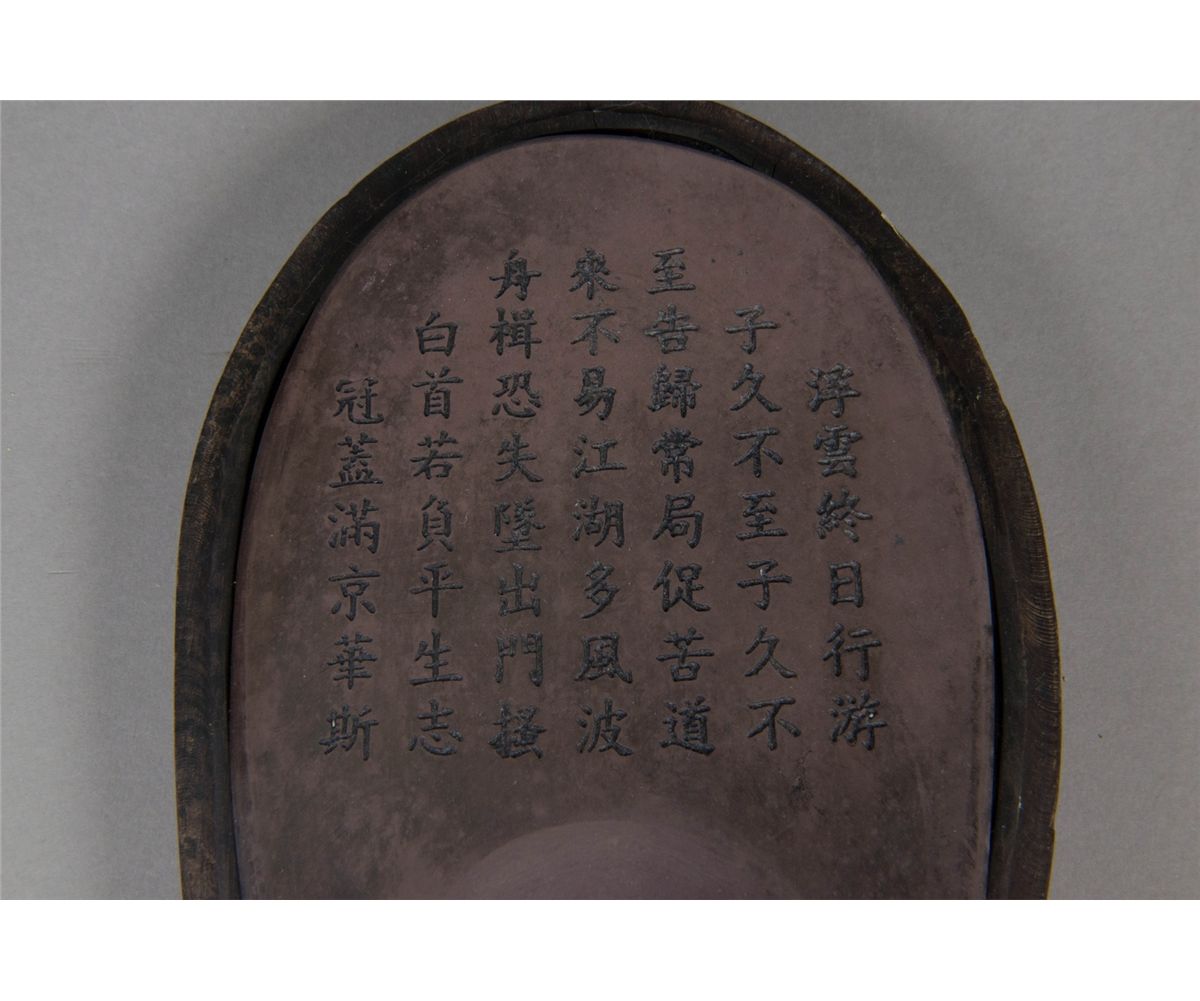 浮雲終日行游
子久不至子久不
至告歸常局促苦道
來不易江湖多風波
舟楫恐失墜出門搔
白首若負平生志
冠蓋滿京華斯